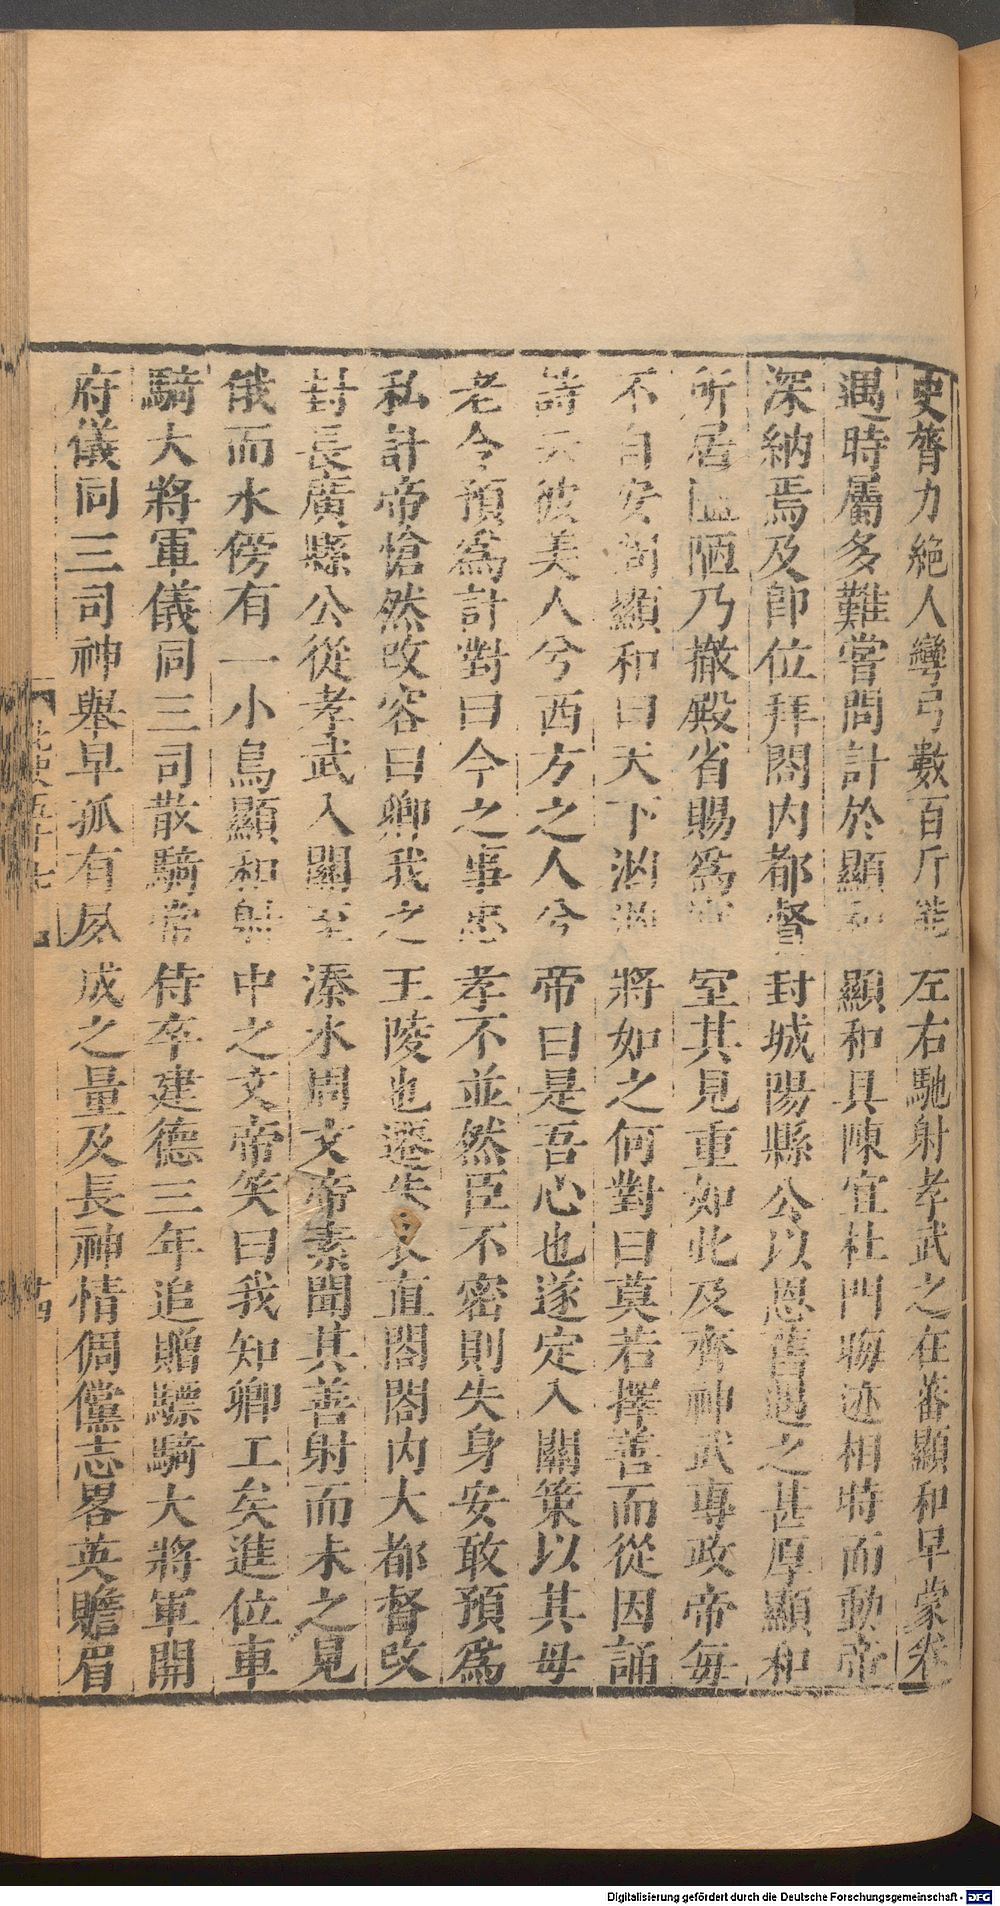 史膂力絕人彎弓數百斤能左右馳射孝武之在蕃顯和早蒙眷
遇時屬多難嘗問計於顯和顯和具陳宜杜門晦迹相時而動帝
深納焉及即位拜閤內都督封城陽縣公以恩舊遇之甚厚顯和
所居隘陋乃撤殿省賜為寢室其見重如此及齊神武專政帝每
不自安問顯和曰天下洶洶將如之何對曰莫若擇善而從因誦
詩云彼美人兮西方之人兮帝曰是吾心也遂定入關策以其母
老令預為計對曰今之事忠孝不並然臣不密則失身安敢預為
私計帝愴然改容曰卿我之王陵也遷朱衣直閤閤內大都督改
封長廣縣公從孝武入關至溱水周文帝素聞其善射而未之見
俄而水傍有一小鳥顯和射中之文帝笑曰我知卿工矣進位車
騎大將軍儀同三司散騎常侍卒建德三年追贈驃騎大將軍開
府儀同三司神舉早孤有夙成之量及長神情倜儻志畧英贍眉
北史五十七
十四
Digitalisierung gefördert durch die Deutsche Forschungsgemeinschaft - DFG